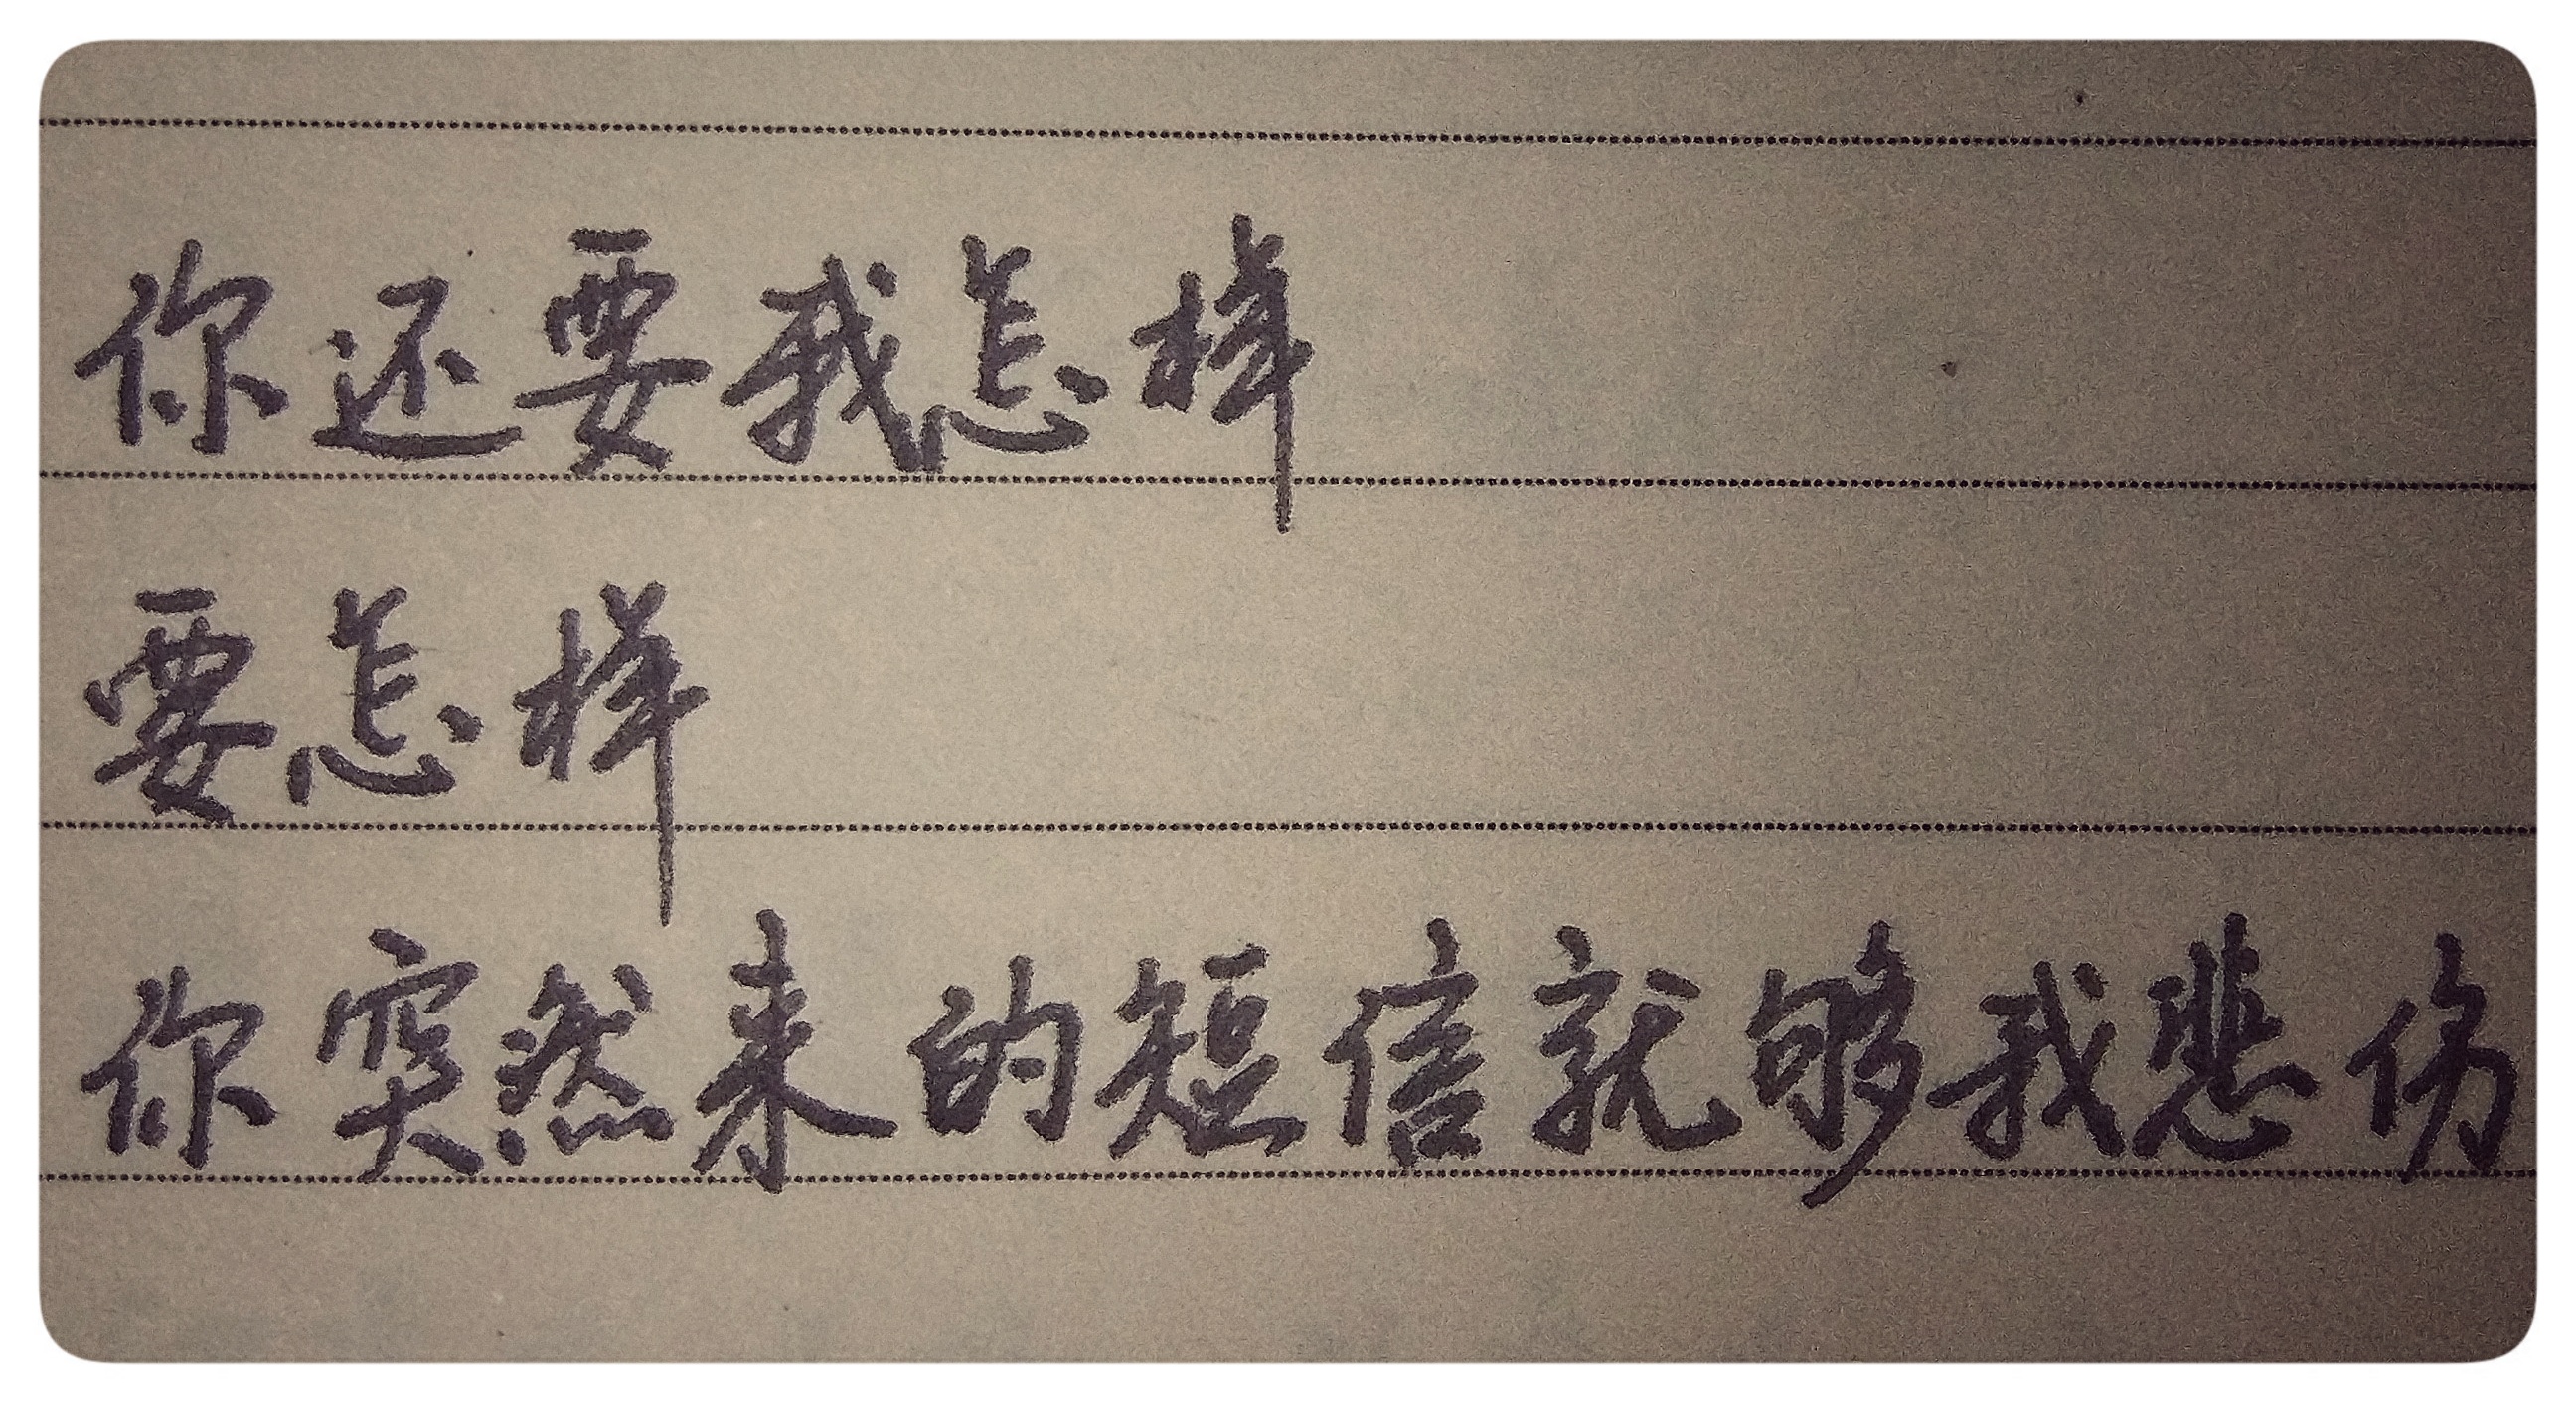 你还要我怎样
要怎样
你突然来的短信就够我悲伤